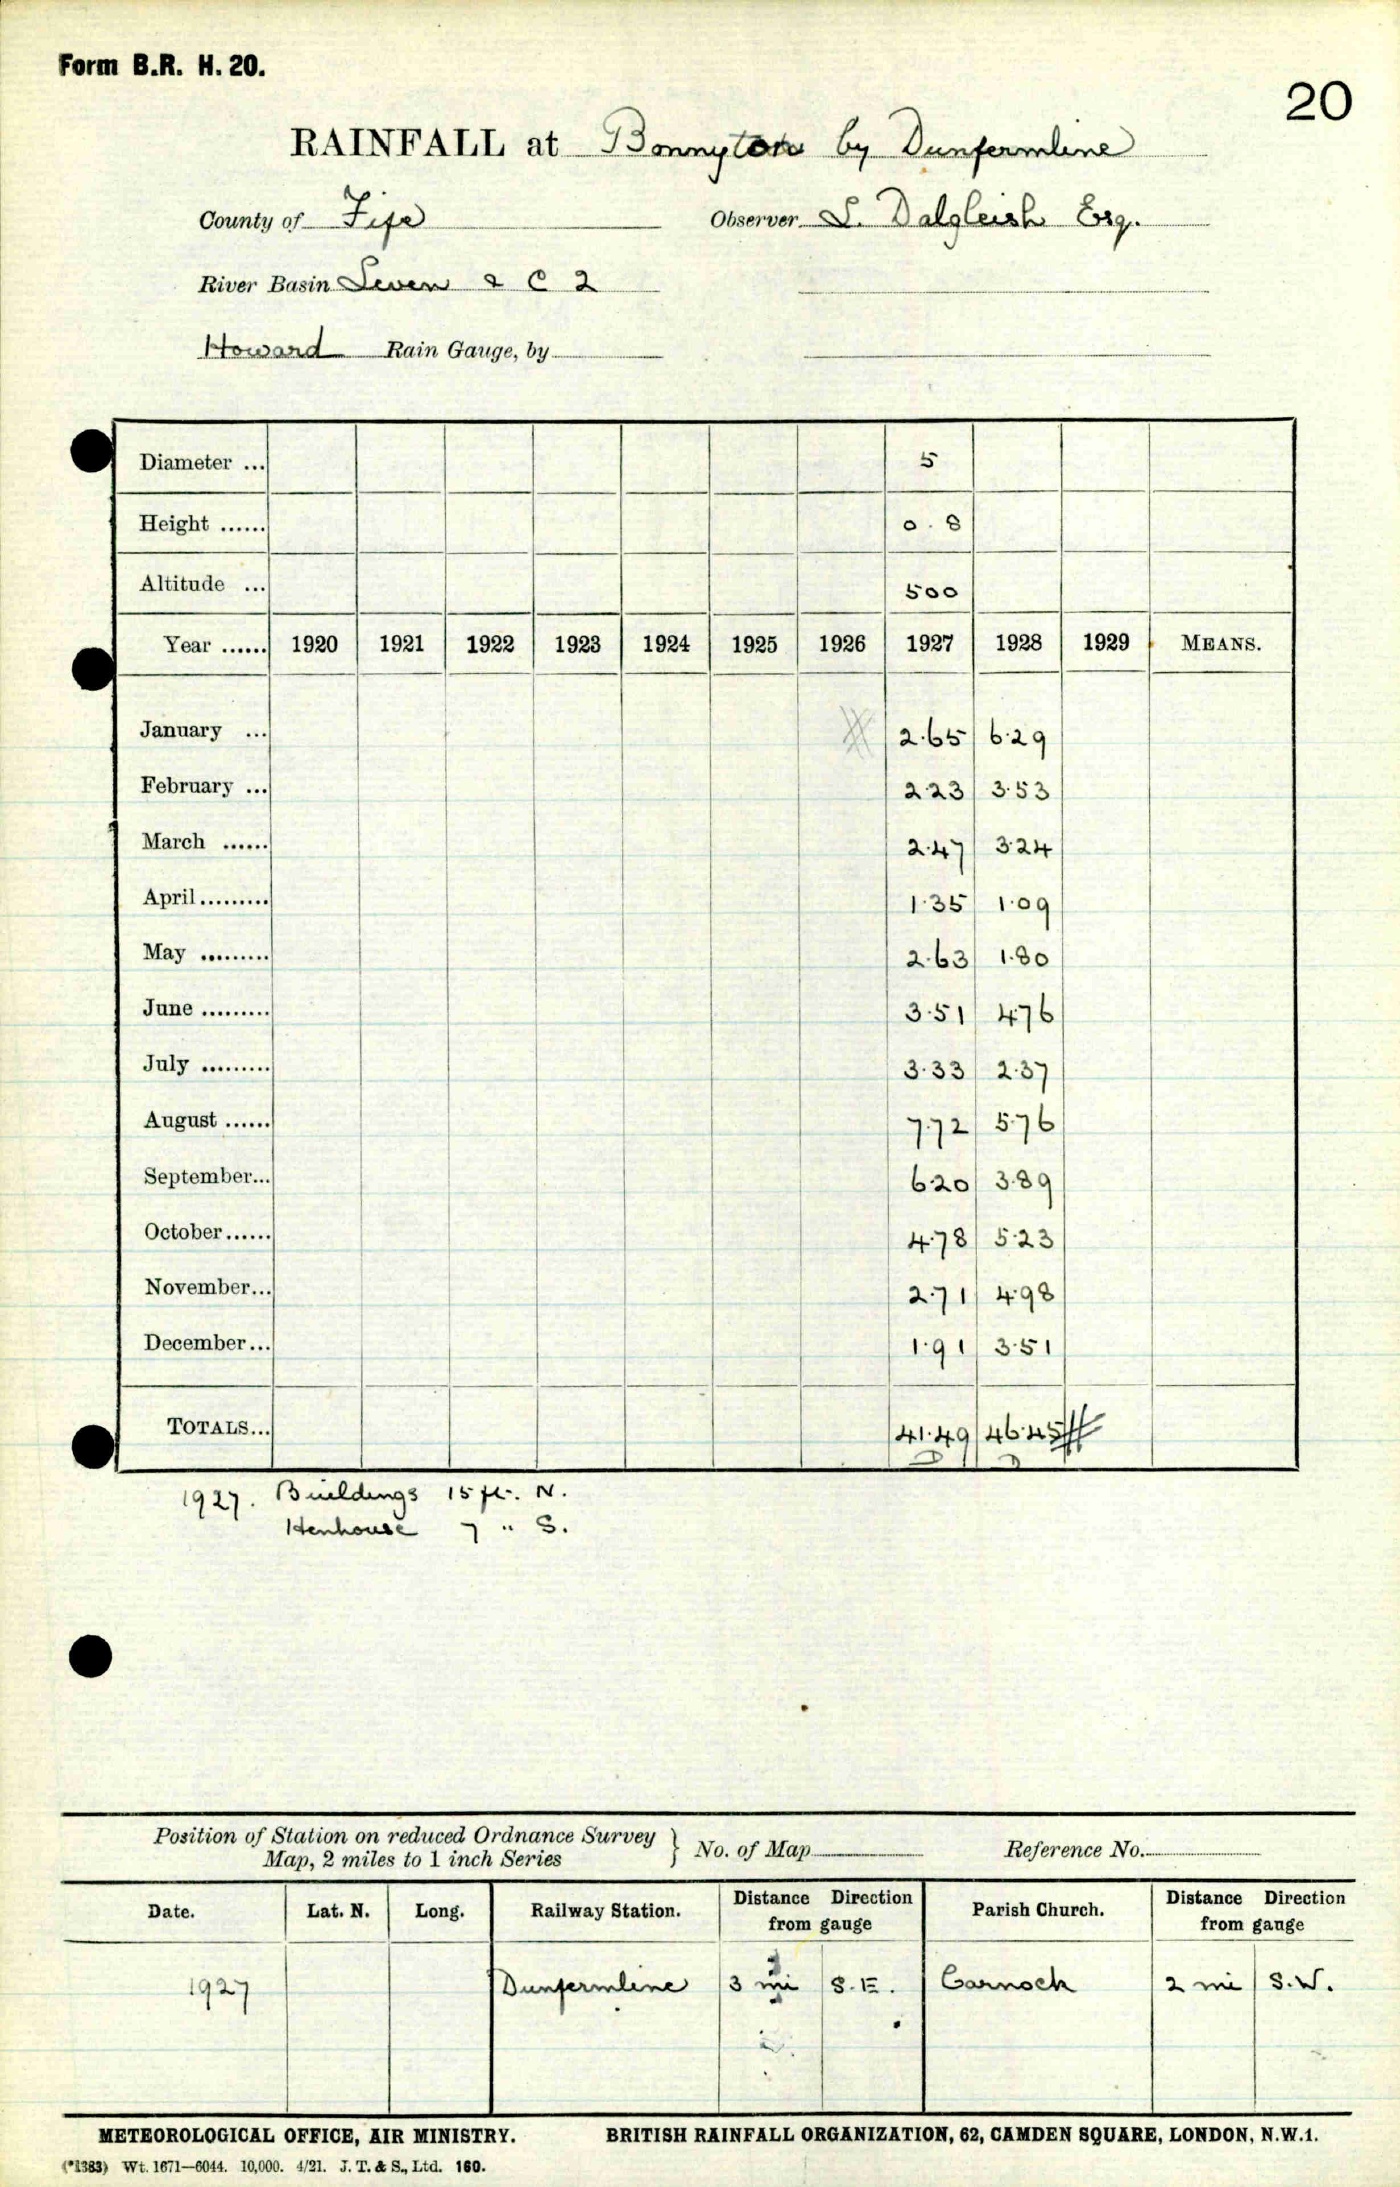 Form B.R. H. 20.
20
RAINFALL at Bonnyton by Dunfermline
County of Fife Observer L. Dalgleish Esq.
River Basin Leven & C 2
Howard Rain Gauge, by
Diameter ... 5
Height ...... 0.8
Altitude ... 500
Year ...... 1920 1921 1922 1923 1924 1925 1926 1927 1928 1929 MEANS.
January ... 2.65 6.29
February ... 2.23 3.53
March ...... 2.47 3.24
April ......... 1.35 1.09
May ......... 2.63 1.80
June ......... 3.51 4.76
July ......... 3.33 2.37
August ...... 7.72 5.76
September... 6.20 3.89
October...... 4.78 5.23
November... 2.71 4.98
December... 1.91 3.51
TOTALS... 41.49 46.45
D D
1927. Buildings 15 ft. N.
Henhouse 7 " S.
Position of Station on reduced Ordnance Survey
Map, 2 miles to 1 inch Series } No. of Map Reference No.
Date. Lat. N. Long. Railway Station. Distance Direction from gauge Parish Church. Distance Direction from gauge
1927 Dunfermline 3 mi S.E. Carnock 2 mi S.W.
METEOROLOGICAL OFFICE, AIR MINISTRY. BRITISH RAINFALL ORGANIZATION, 62, CAMDEN SQUARE, LONDON, N.W.1.
(*1383) Wt. 1671—6044. 10,000. 4/21. J. T. & S., Ltd. 160.